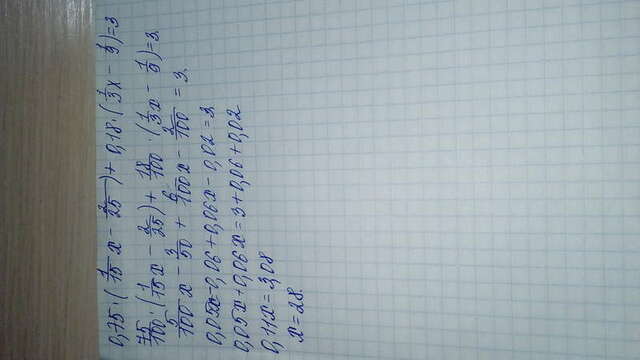 0,75·(1/15 x − 2/25) + 0,18·(1/3 x − 1/9) = 3
75/100·(1/15 x − 2/25) + 18/100·(1/3 x − 1/9) = 3.
5/100 x − 3/50 + 6/100 x − 2/100 = 3.
0,05x − 0,06 + 0,06x − 0,02 = 3.
0,05x + 0,06x = 3 + 0,06 + 0,02
0,11x = 3,08
x = 28.